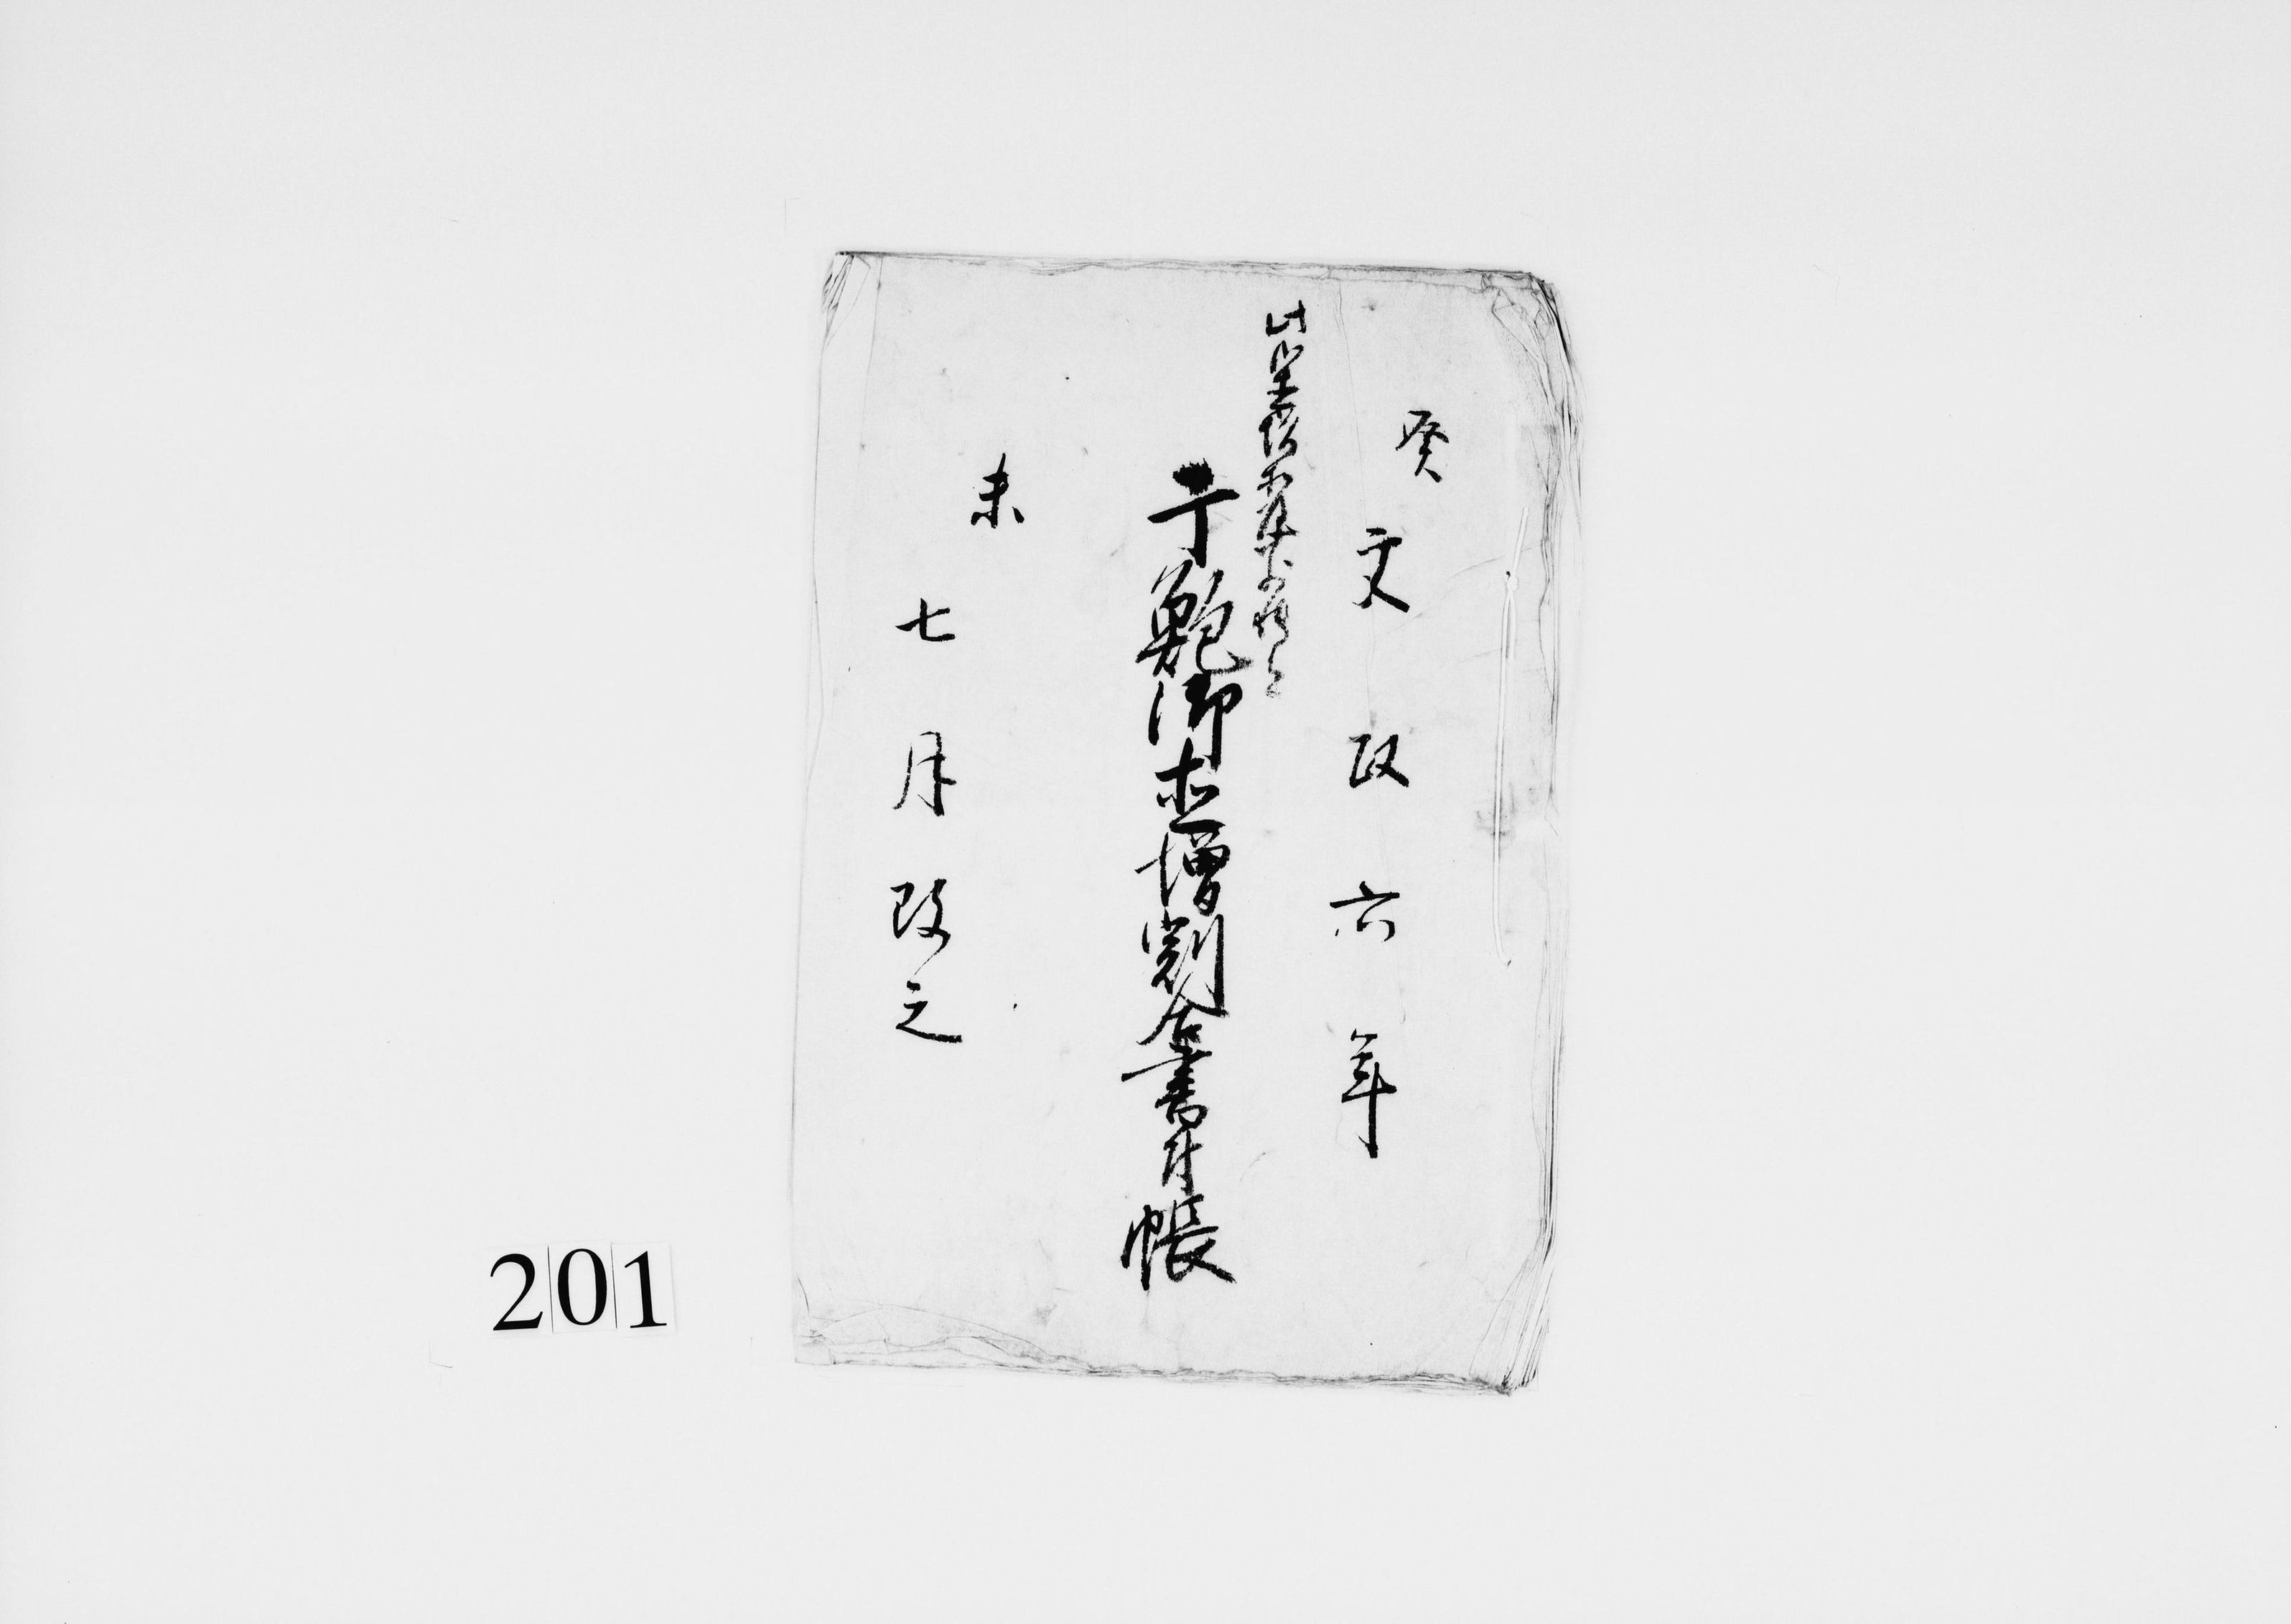 癸
文政六年
干鮑御直増割合書付帳
未
七月改之
201